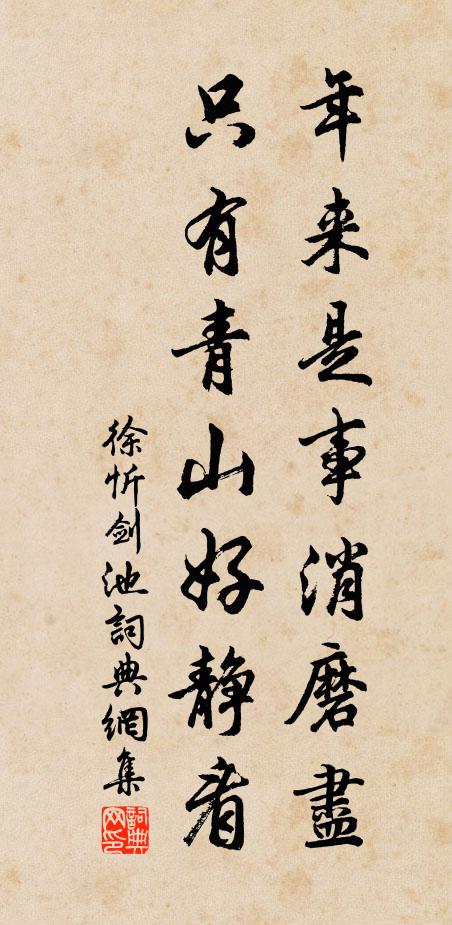 年来是事消磨盡
只有青山好静看
徐忻劍池詞典網集
詞典网印